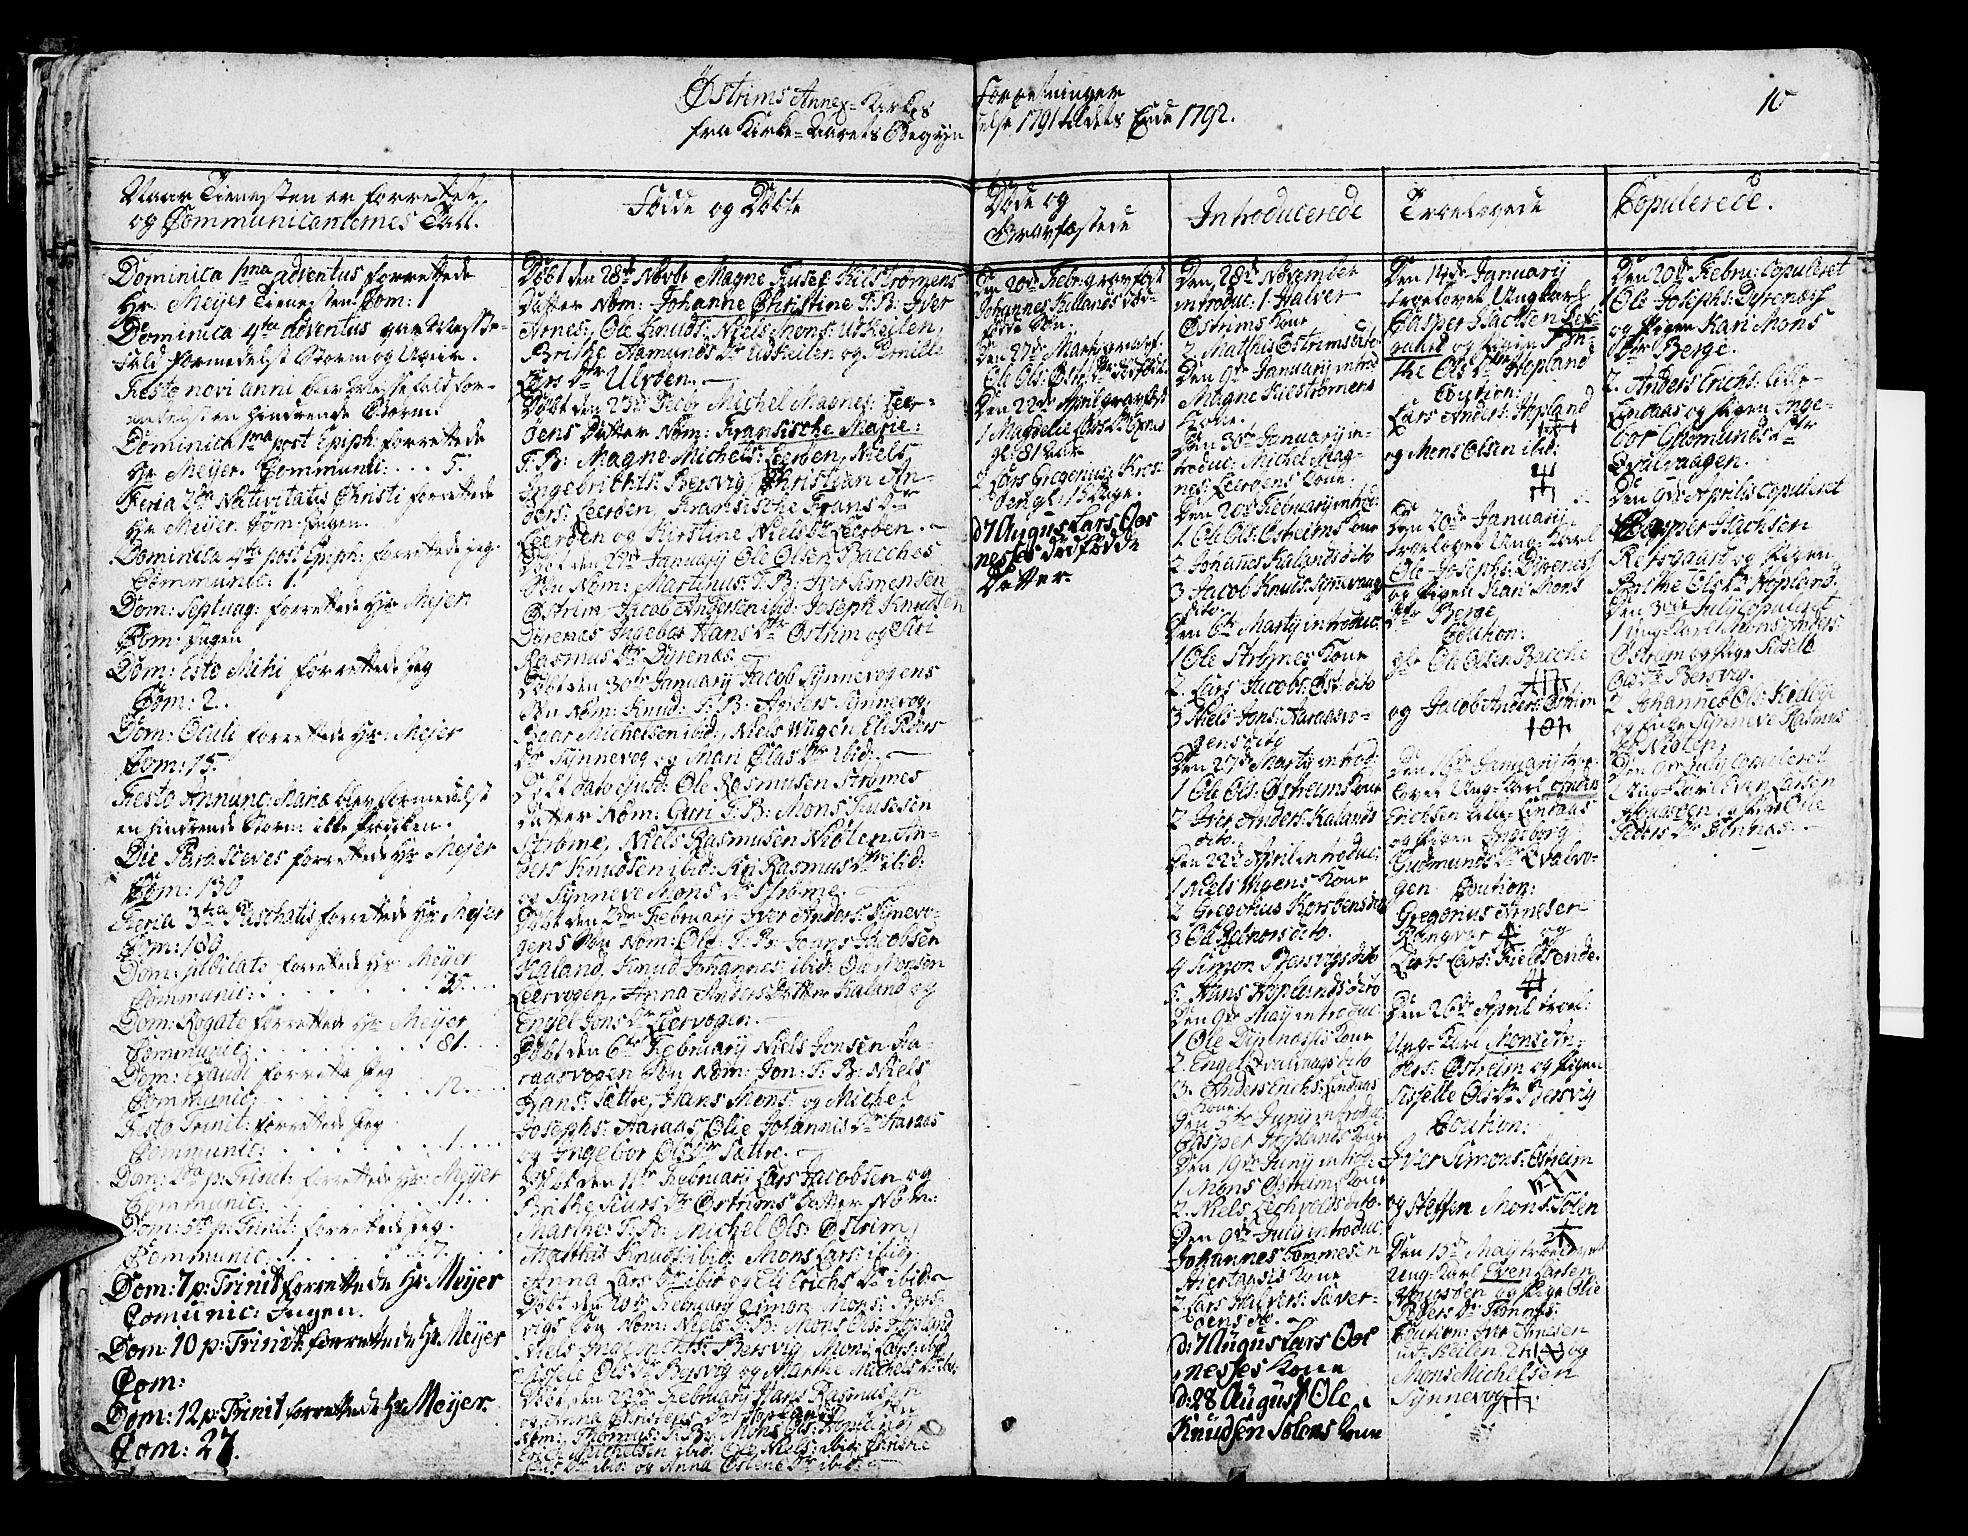 Østrims Annex-Kirkes Forretninger
fra Kirke-Aarets Begyn else 1791 til dets Ende 1792.
10
Naar Tienesten er forrettet
og Communicanternes Tall.
Dominica 1ma adventus forrettede
Hr. Meyer Tienesten Com: 1
Dominica 4ta adventus
fald formedelst Storm og
Festo novi anni blev Messefald for-
en hindrende Storm.
Dominica 1ma post Epiph: forrettede
Hr Meyer. Communic: . . . 5.
Feria 2da Nativitatis Christi forrettede
Hr Meyer. Com: Ingen.
Dominica 4ta post Epiph: forrettede jeg.
Communic: 1.
Dom: Septuag: forrettede Hr Mejer
Com: Ingen
Dom: Esto Mihi forrettede Jeg
Com: 2.
Dom: Oculi forrettede Hr: Mejer
Com: 15.
Festo Annunc: Mariæ blev formedelst
en hindrende Storm ikke
Die Parasceves forrettede Hr Mejer
Com: 130
Feria 3tia Paschatis forrettede Hr Mejer
Com: 189
Dom: jubilate forrettede Hr: Meyer
Communic: . . . 35
Dom: Rogate forrettede Hr Meyer
Communic: . . . 81.
Dom: Exaudi forrettede Jeg
Communic: . . . 12.
Festo Trinit: forrettede Jeg
Communic: . . . 1.
Dom: 2da p: Trinit: forrettede Hr: Meyer
Communic: . . . 11.
Dom: 5ta p: Trinit: forrettede Jeg.
Communic. . . . 7.
Dom: 7 p: Trinit forrettede Hr Meyer
Comunic: Ingen.
Dom: 10 p: Trinit: forrettede Hr Meyer
Com:
Dom: 12 p: Trinit forrettede Hr Meyer.
Com: 27.
Fødde og Døbte
Døbt den 28de Novbr Magne
Datter Nom: Johanne Christine T. B: Iver
Arnes:, Ole Knuds: Niels Mons: Uskeilen,
Brithe Aamunds Dr Uskeilen og Pernille
Lars Dr Ulvøen.
Døbt den 23de Dec: Michel Magnes: Leer-
øens Datter Nom: Fransische Marie:
T. B: Magne Michels: Leerøen, Niels
Ingebrichts: Bersvig, Christian An-
ders: Leerøen, Fransische Frans Dr
Leerøen og Kirstine Niels Dr Leerøen.
January Ole Olsen Bacches
Søn Nom: Martinus: T. B: Iver Simensen
Østrim Jacob Andersen ibid: Joseph Knudsen
Dyrenæs Ingebor Hans Dr Østrim og Siri
Rasmus Dr Dyrenæs.
Døbt den 30te January Jacob Synnevogens
Søn Nom: Knud: T. B: Anders Synnevog,
Baar Michelsen ibid:, Niels Wiigen, Eli Peders
Dr Synnevog og Mari Olas Dr ibid:
Døbt dato ejusd: Ole Rasmusen Strømes
Datter Nom: Guri T. B: Mons
Strøme, Niels Rasmusen Niølen An-
ders Knudsen ibid: Kri Rasmus Dr ibid:
og Synneve Mons Dr Strøme.
Døbt den 2den February Iver Anders: Synevo-
gens Søn Nom: Ole: T. B: Joans Jacobsen
Kaland, Knud Johannes: ibid: Ole Monsen
Leervogen, Anna Anders Datter Kaland og
Engel Jons Dr Leervogen.
Døbt den 6te February Niels Jonsen Aa-
raasvogen Søn Nom: Jon: T. B: Niels
Hans: Sættre, Hans Mons: og Michel
Josephs: Aaraas Olie Johannis Dr Aaraas
og Ingebor Ols Dr Sættre.
Døbt den 11te February Lars Jacobsen og
Brithe Siurs Dr Østrims Datter Nom:
Marthe: T. B: Michel Ols: Østrim,
Matthis Knuds: ibid: Mons Lars: ibid:
Anna Lars Dr ibid og Eli Erichs Dr ibid
Døbt den 20de February Simon Mons: Bers-
vigs Søn Nom: Niels T. B: Mons Ols: Hopland
Niels Ingebrichts: Bersvig Mons Lars: ibid
Sissele Ols Dr Bersvig og Marthe Michels Dr ib:
Døbt den 22de February Hans Rasmusen
og Anna
Nom: Thomas: T. B: Mons Ols: Hopland,
Erich Michelsen ibid: Ole Niels: ibid:
ibid: og Anna Østens Dr ibid:
Døde og
Gravfæstede
Den 20de Febr: gravfæst
Johannes Killands død-
fødde Søn
Den 27de Marty
Ole Ols: Østr:
Den 22de April gravfæst
1 Magdelie Lars Dr
gl: 81 Aar
2 Lars Gregorius:
gl: 15 Dage.
d: 7 Augus Lars Oor
nesses dødfødde
Datter-
Introducerede
Den 28de November
introduc: 1 Halver
Østrims Kone
2 Matthis Østrims dito
Den 9de January introd
Magne
Kone.
Den 30te January in-
troduc: Michel Mag-
nes: Leerøens Kone:
Den 20de February introd:
1 Ole Ols: Østeims Kone
2 Johanes Kalands dito
3 Jacob Knuds: Synevaags
dito.
Den 6te Marty introduc.
1 Ole Strømes Kone
2. Lars Jacobs: Øst: dito
3 Niels Jons: Aaraasvo-
gens dito
Den 27de Marty introd:
1 Ole Ols: Østeims Kone
2 Iver Anders: Kalands
dito.
Den 22de April introduc:
1 Niels Wigens Kone
2 Gregorius Korsøens dito
3 Ole Rolnors dito.
4 Simon Bersvigs dito
5. Hans Hoplands dito
Den 9de Maij introduc:
1 Ole Dyrnæsis Kone
2. Engel dito
3. Anders Erichs: Lindaas
Kone
Den 5te Junij introduc:
Casper Hoplands Kone
Den 19de Junij introd:
1 Mons Østreims Kone
2. Niels dito.
Den 9de July introduc:
Johannes Tommesen
Hiertaasis Kone
2 Lars Halvers: Sæver-
øens do.
d: 7 Augus Lars Oor
nesses Kone
d: 28 August Ole
Knudsen Solems Kone
Troelovede
Den 14de January
troelovet Ungkarl
Casper Isachsen Refs-
gaard og Pigen Bri-
the Ols Dr Hopland
Coution:
Lars Anders: Hopland
og Mons Olsen ibid:
Den 20de January
troelovet Ung-Karl
Ole Josephs: Dyrenæs
og Pigen Kari Mons
Dr Berge
Coution:
Ole Olsen Bacche
og Jacob Anders: Østrim
January troe-
lovet Ung-Karl Anders
Erichsen Lille-Lindaas
og Pigen Ingeborg
Gudmunds Dr Qvalvo-
gen Coution:
Gregorius Arnesen
Rongver og
Lars Lars: Fieldsende.
Den 26de April troel:
Ung-Karl Mons An-
ders: Østreim og Pigen
Sisselle Ols Dr Bersvig
Coution:
Iver Simons: Østreim
og Steffen Mons: Solen
Den 13de Maij troelovet
Ung-Karl Even Larsen
Haugsøen og Pige Olie
Peders Dr Tonnes:
Coution: Iver Arnesen
Ut-Keilen og
Mons Michelsen
Synnevog
Copulerede.
Den 20de Febru: Copuleret
1 Ole Josephs: Dyrenæs
og Pigen Kari Mons
Dr Berge.
2. Anders Erichs: Lille-
Lindaas og Pigen Inge-
bor Gudmunds Dr
Qvalvaagen.
Den 9de Aprilis Copuleret
Casper Isachsen
Refsgaard og Pigen
Brithe Ols Dr Hopland.
Den 3die July Copuleret
1 Ung-Karl Mons Anders:
Østreim og Pige Sisselle
Ols Dr Bersvig.
2 Johannes Ols:
og Pige Synneve Rasmus
Dr Niølen.
Den 9de July Copuleret
Ung-Karl Even Larsen
Haugsøen og Pige Olie
Peders Dr Tonnes.